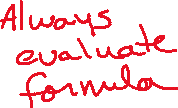 Always
evaluate
formula